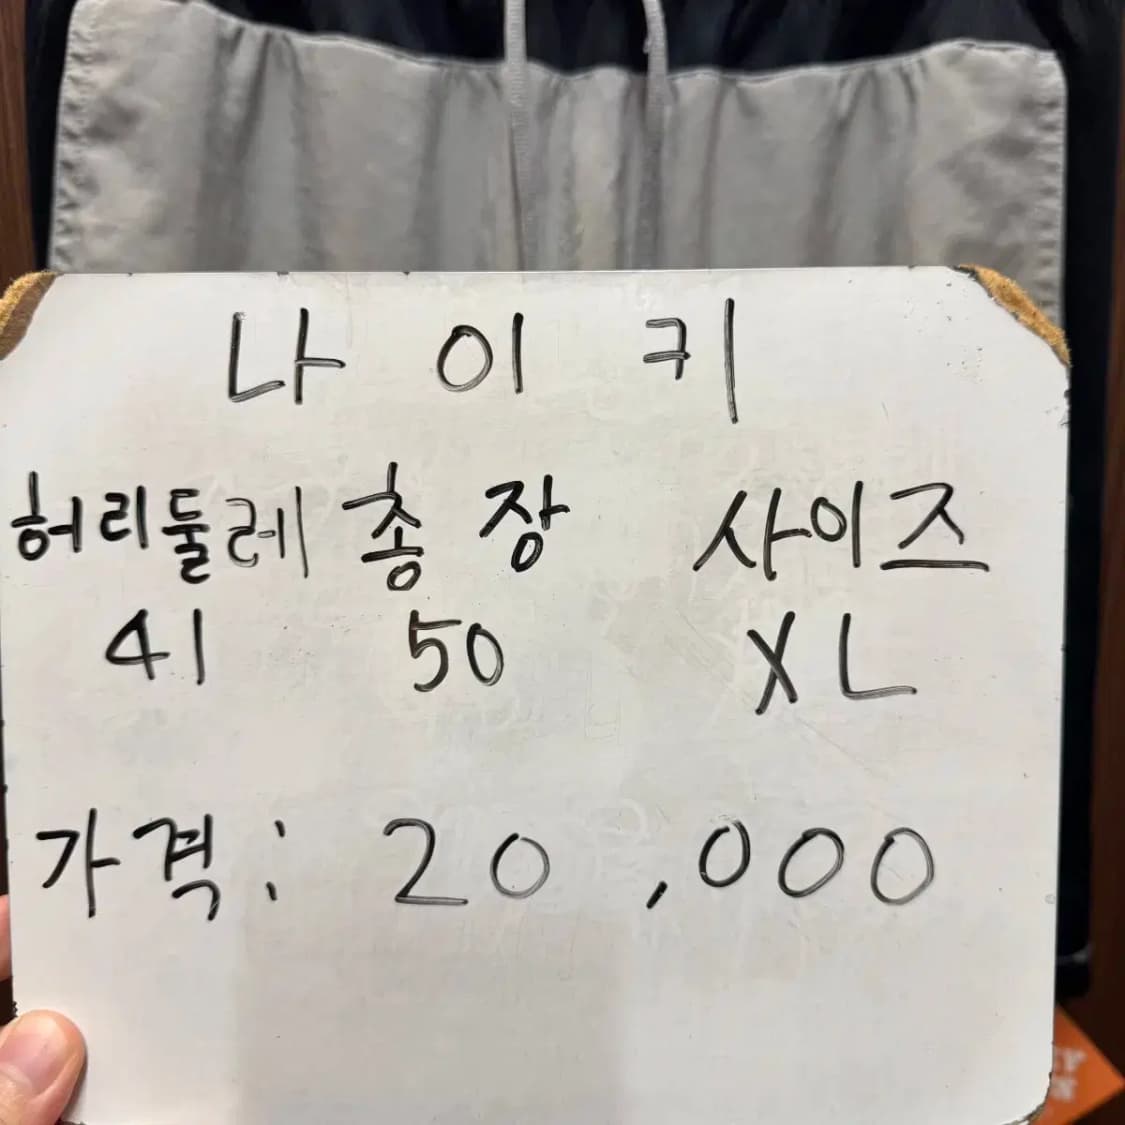 나이키
허리둘레 총장 사이즈
41 50 XL
가격: 20,000